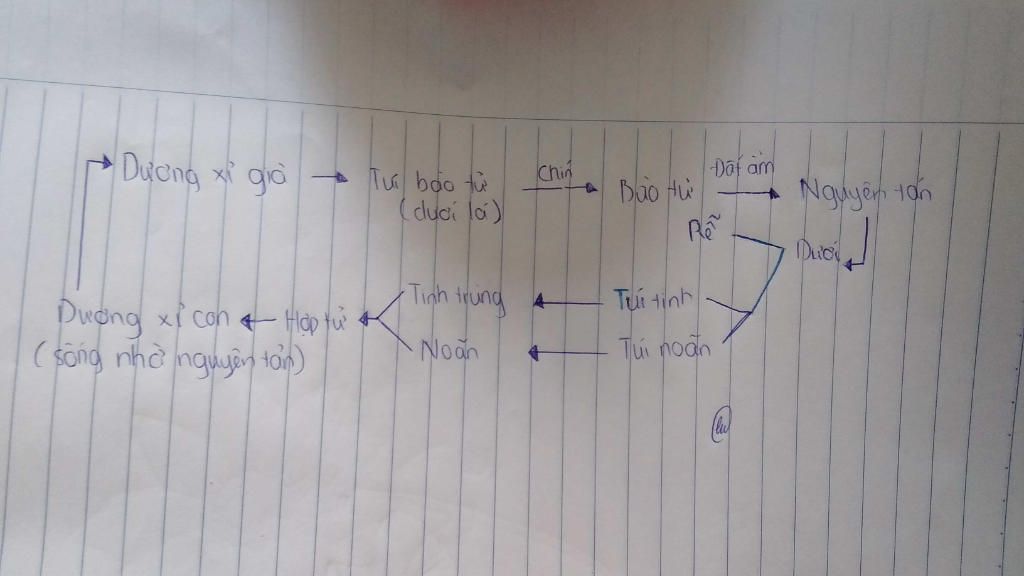 Dương xỉ già → Túi bào tử → Chín Bào tử → Đất ẩm Nguyên tản
(dưới lá)
Rễ
Dưới
Tinh trùng ← Túi tinh
Dương xỉ con ← Hợp tử ←
(sống nhờ nguyên tản)
Noãn ← Túi noãn